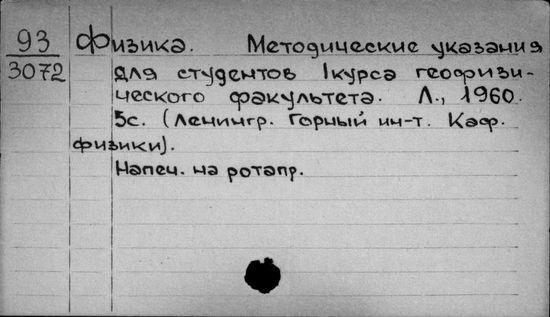 93 Физика. Методические указания
3072 для студентов I курса геофизи-
ческого факультета. Л., 1960.
5с. (Ленингр. Горный ин-т. Каф.
физики).
Напеч. на ротапр.